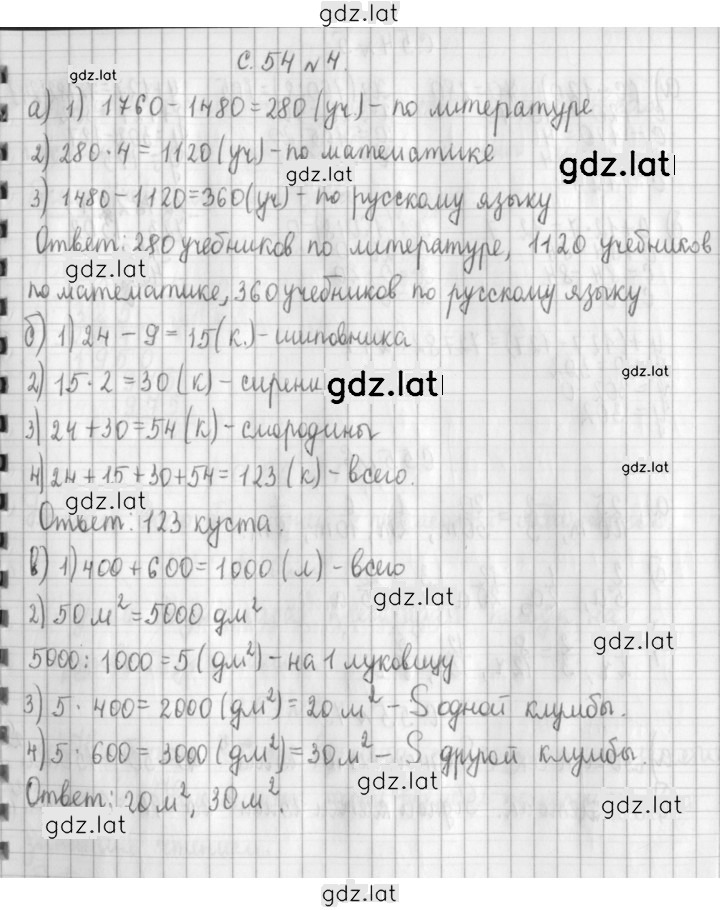 gdz.lat
с. 54 №4.
gdz.lat
а) 1) 1760 - 1480 = 280 (уч) - по литературе
2) 280 · 4 = 1120 (уч) - по математике
gdz.lat
gdz.lat
3) 1480 - 1120 = 360 (уч) - по русскому языку
Ответ: 280 учебников по литературе, 1120 учебников
gdz.lat
по математике, 360 учебников по русскому языку
б) 1) 24 - 9 = 15 (к.) - шиповника
gdz.lat
2) 15 · 2 = 30 (к) - сирени
gdz.lat
3) 24 + 30 = 54 (к) - смородины
4) 24 + 15 + 30 + 54 = 123 (к) - всего.
gdz.lat
gdz.lat
Ответ: 123 куста.
в) 1) 400 + 600 = 1000 (л) - всего
gdz.lat
2) 50 м² = 5000 дм²
gdz.lat
5000 : 1000 = 5 (дм²) - на 1 луковицу
3) 5 · 400 = 2000 (дм²) = 20 м² - S одной клумбы.
4) 5 · 600 = 3000 (дм²) = 30 м² - S другой клумбы.
gdz.lat
Ответ: 20 м², 30 м²
gdz.lat
gdz.lat
gdz.lat